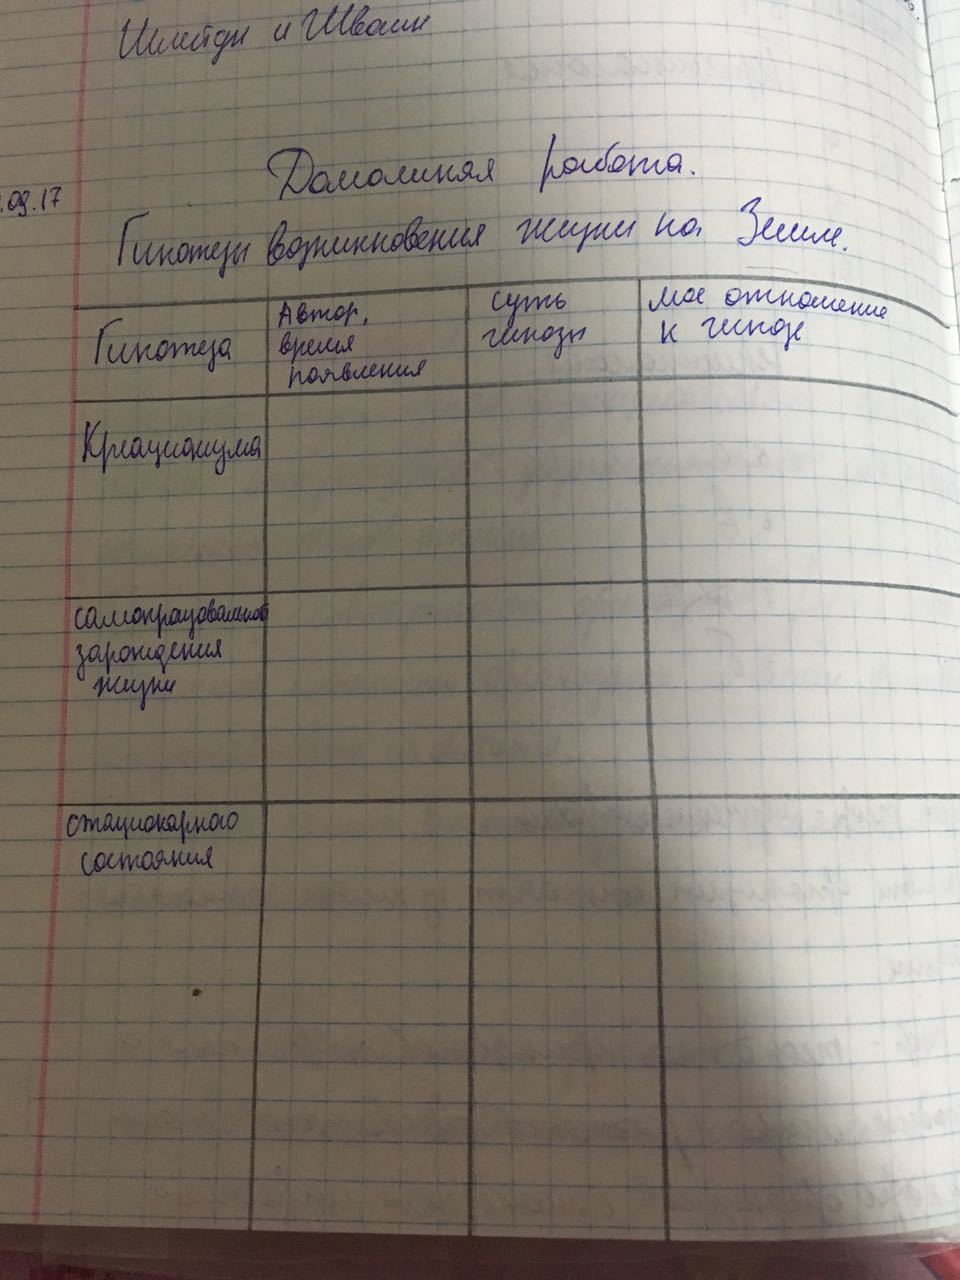 Шлейден и Шванн
.09.17
Домашняя работа.
Гипотезы возникновения жизни на Земле.
Гипотеза
Автор,
время
появления
суть
гипозы
мое отношение
к гипозе
Креационизма
самопроизвольное
зарождения
жизни
стационарного
состояния